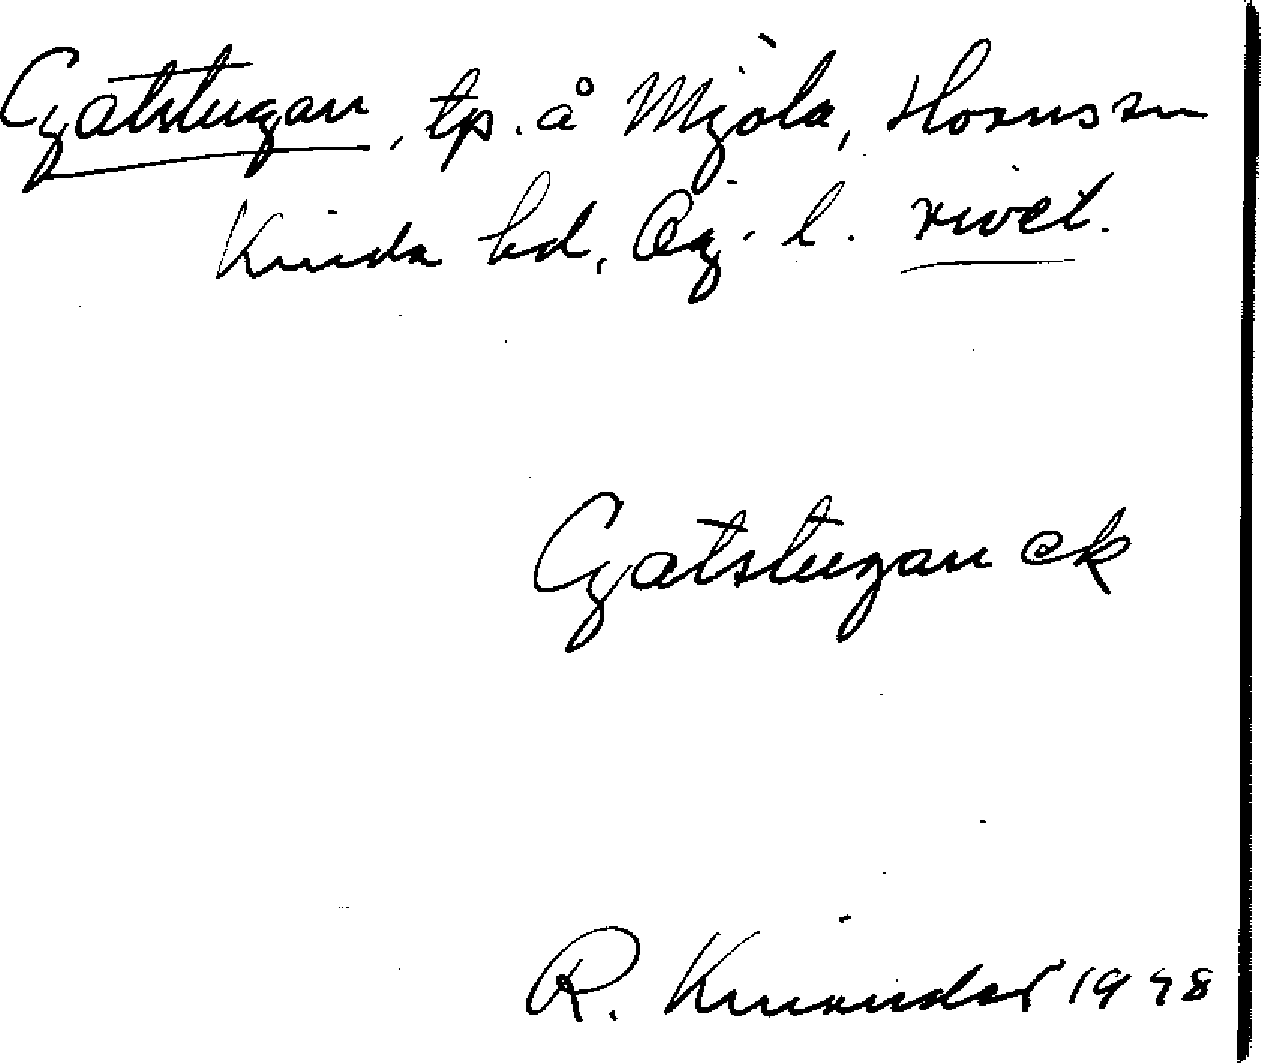 Gatstugan, tp. å Mjöla, Horns sn
Kinda hd, Ög. l. rivet.
Gatstugan ek
R. Kinander 1948